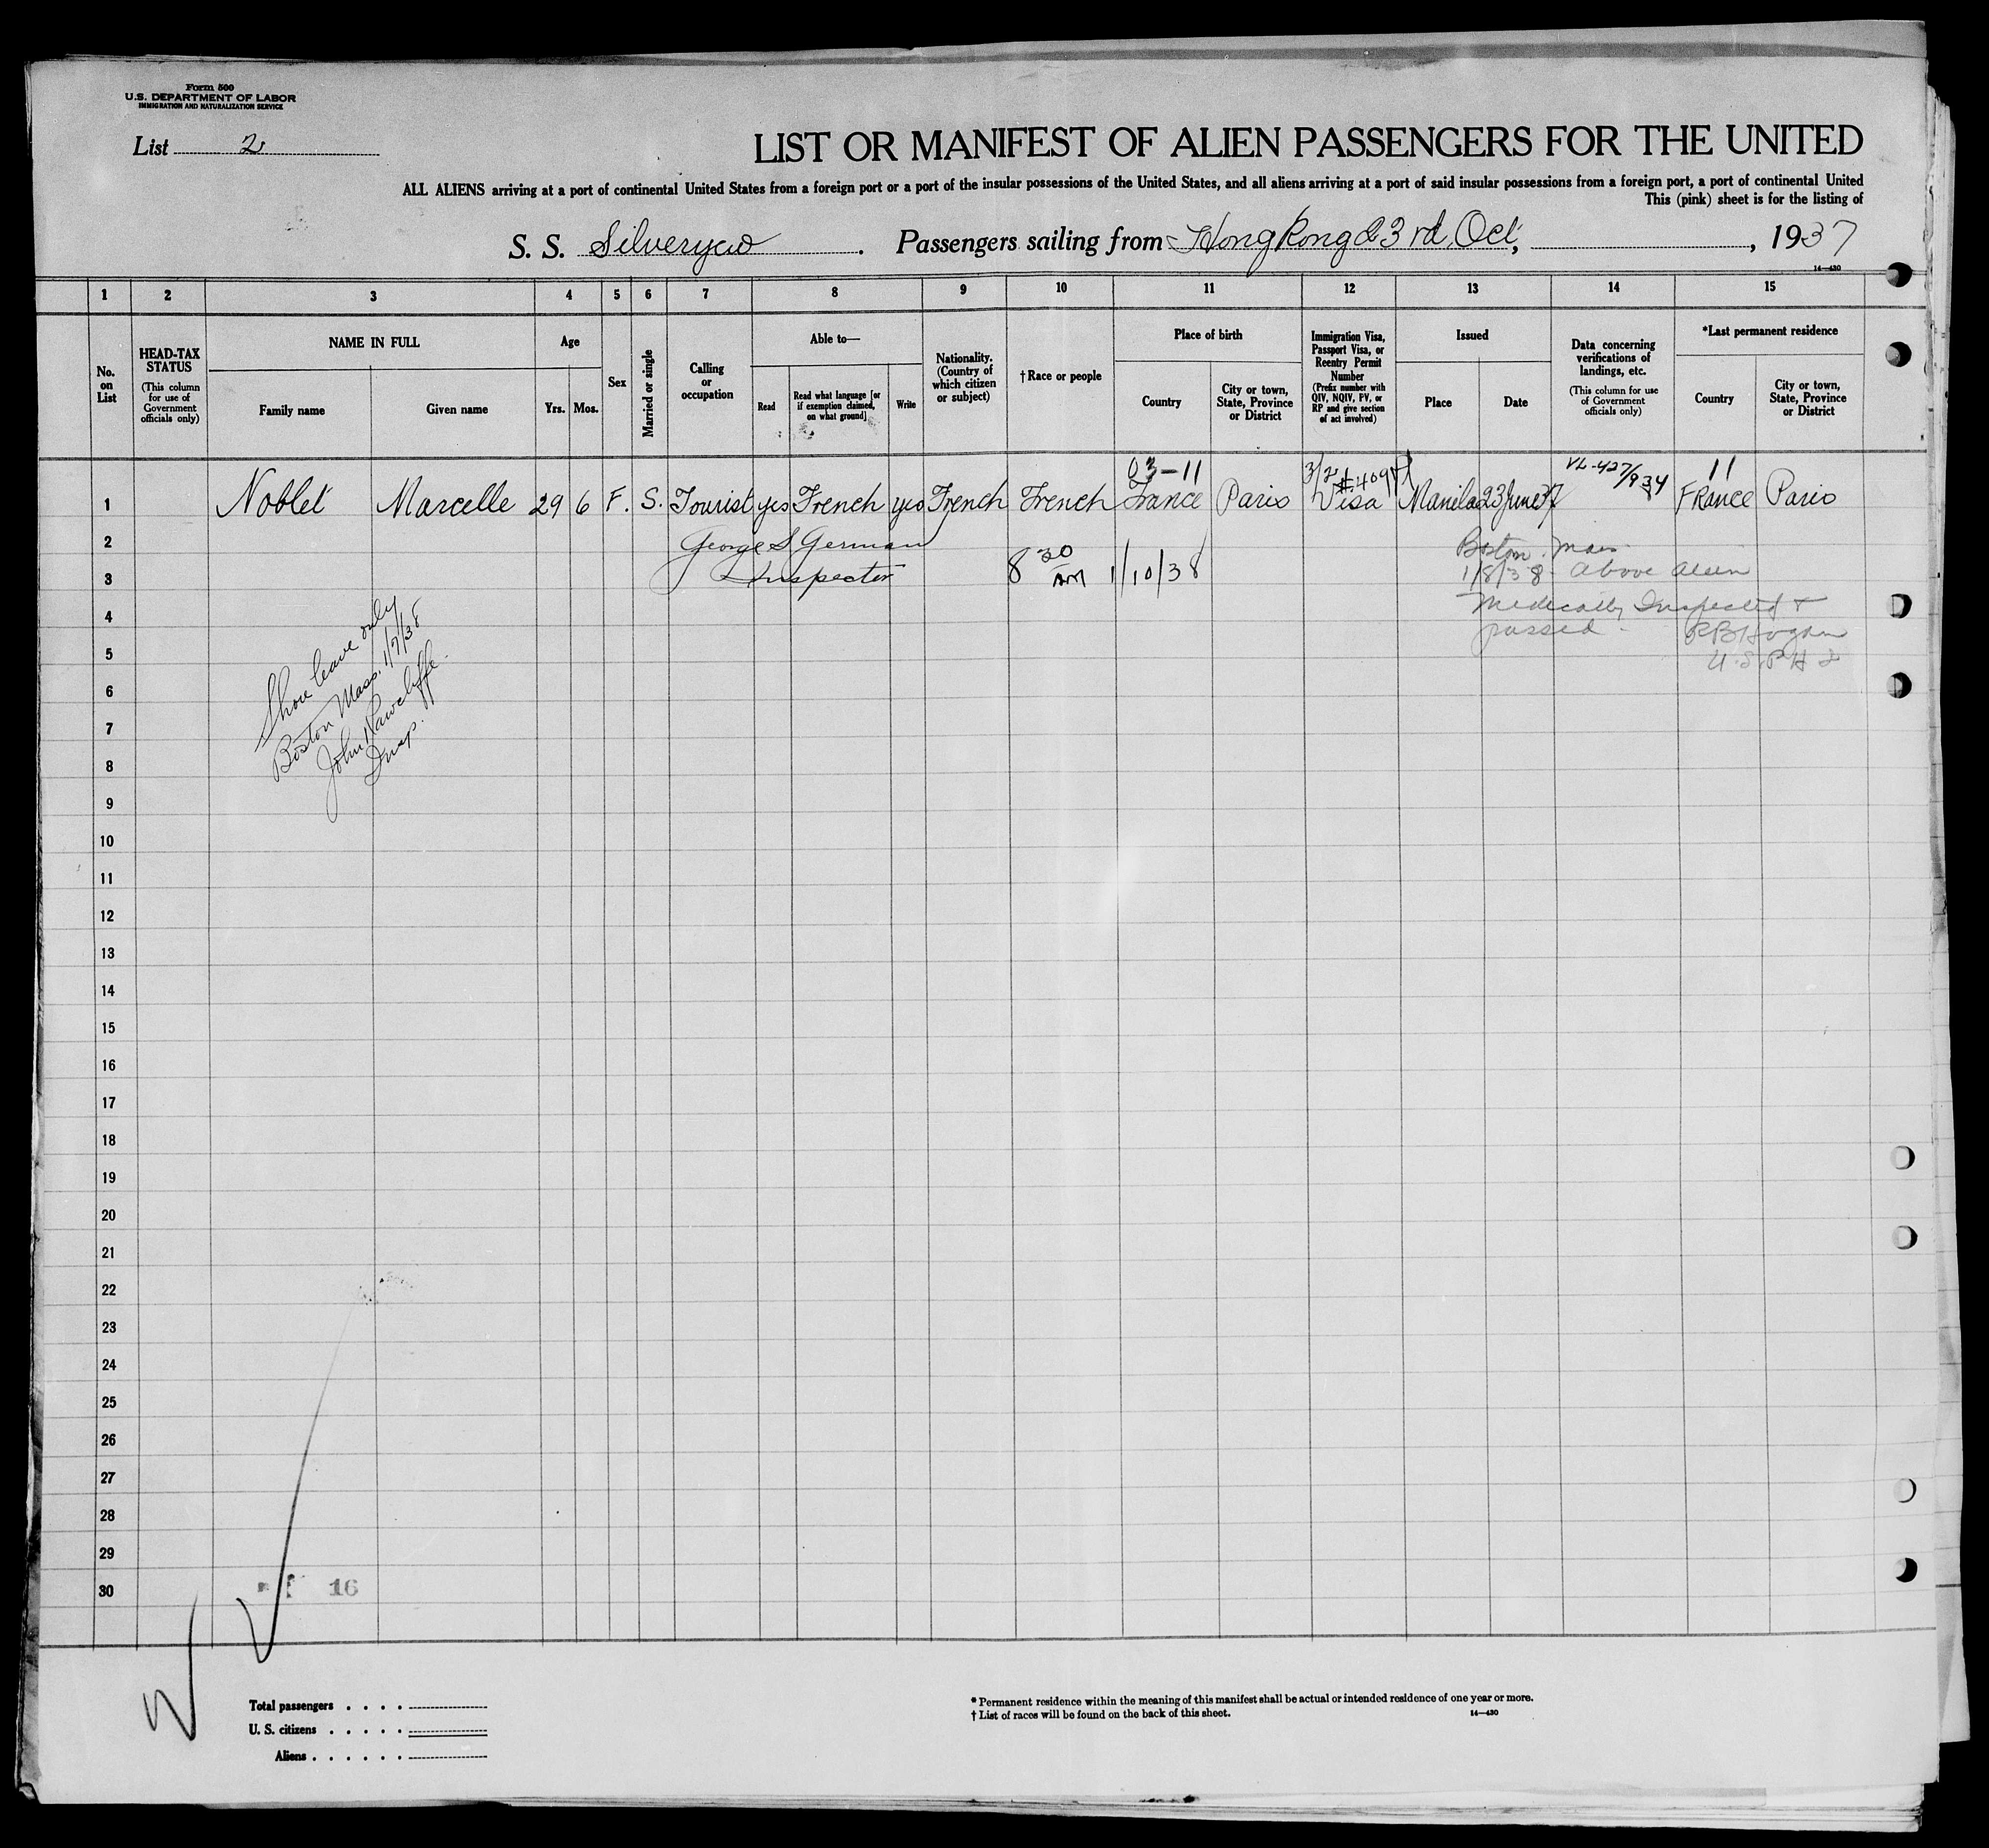 Form 500
U.S. DEPARTMENT OF LABOR
IMMIGRATION AND NATURALIZATION SERVICE
List 2
LIST OR MANIFEST OF ALIEN PASSENGERS FOR THE UNITED
ALL ALIENS arriving at a port of continental United States from a foreign port or a port of the insular possessions of the United States, and all aliens arriving at a port of said insular possessions from a foreign port, a port of continental United
This (pink) sheet is for the listing of
S. S. Silveryew. Passengers sailing from Hong Kong 23rd. Oct, , 1937
14—430
1 2 3 4 5 6 7 8 9 10 11 12 13 14 15
No. on List
HEAD-TAX STATUS
(This column for use of Government officials only)
NAME IN FULL
Family name Given name
Age
Yrs. Mos.
Sex
Married or single
Calling or occupation
Able to—
Read
Read what language [or if exemption claimed, on what ground]
Write
Nationality. (Country of which citizen or subject)
†Race or people
Place of birth
Country
City or town, State, Province or District
Immigration Visa, Passport Visa, or Reentry Permit Number
(Prefix number with QIV, NQIV, PV, or RP and give section of act involved)
Issued
Place Date
Data concerning verifications of landings, etc.
(This column for use of Government officials only)
*Last permanent residence
Country
City or town, State, Province or District
03-11 11
1 Noblet Marcelle 29 6 F. S. Tourist yes French yes French French France Paris Visa Manila 23 June 37 France Paris
2 George S German
Boston. Mass
3 Inspector 8 30 AM 1/10/38
1/8/38 - Above alien
4 Medically Inspected &
5 passed - RB Hogan
U.S.P.H.S
Shore leave only
Boston Mass. 1/7/38
John Rawcliffe
Insp.
6
7
8
9
10
11
12
13
14
15
16
17
18
19
20
21
22
23
24
25
26
27
28
29
30
16
Total passengers . . . .
U. S. citizens . . . . .
Aliens . . . . . .
* Permanent residence within the meaning of this manifest shall be actual or intended residence of one year or more.
† List of races will be found on the back of this sheet.
14—430